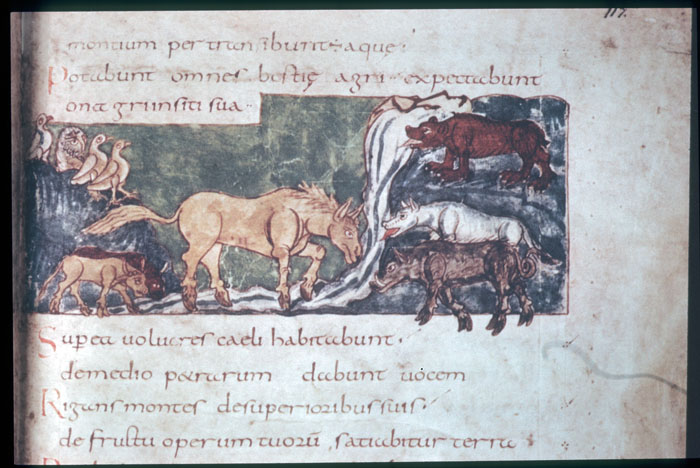 117.
montium pertransibunt aquę·
Potabunt omnes bestię agri· expectabunt
onagri insiti sua·
Super ea volucres caeli habitabunt·
de medio petrarum dabunt vocem
Rigans montes de superioribus suis·
de fructu operum tuorū satiabitur terra